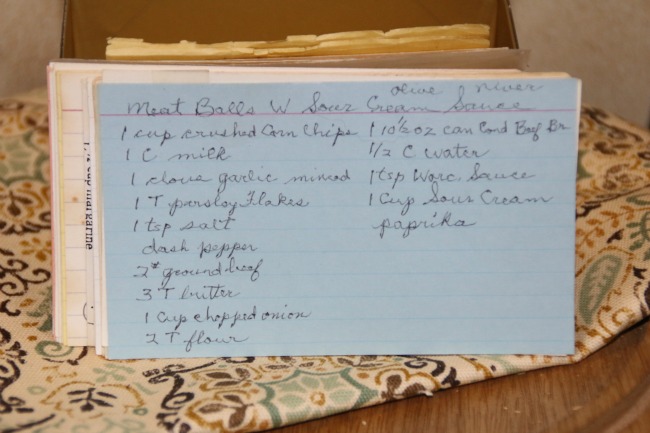 olive niver
Meat Balls W Sour Cream Sauce
1 cup crushed Corn Chips
1 C milk
1 clove garlic minced
1 T parsley Flakes
1 tsp salt
dash pepper
2# ground beef
3 T butter
1 cup chopped onion
2 T flour
1 10½ oz can Cond Beef Br
½ C water
1 tsp Worc. Sauce
1 Cup Sour Cream
paprika
cup margarine